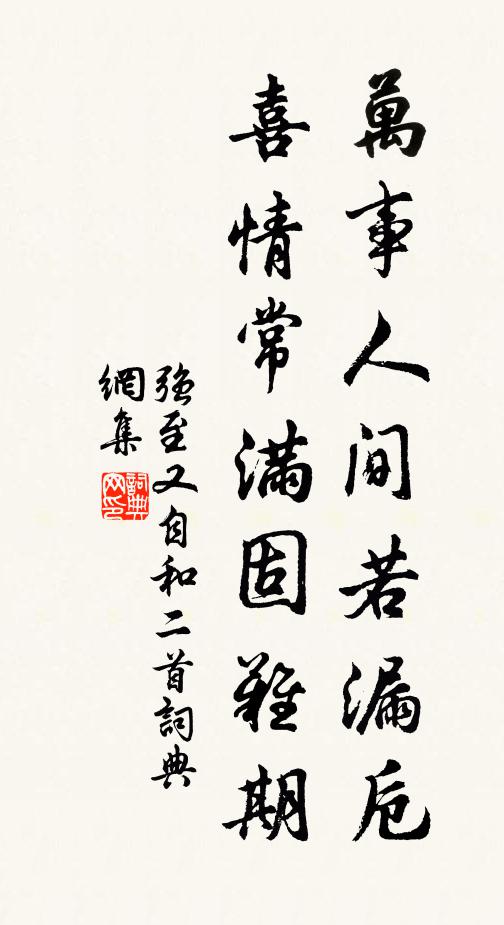 萬事人间若漏卮
喜情常满固難期
強至又自和二首詞典
網集
詞典
网印